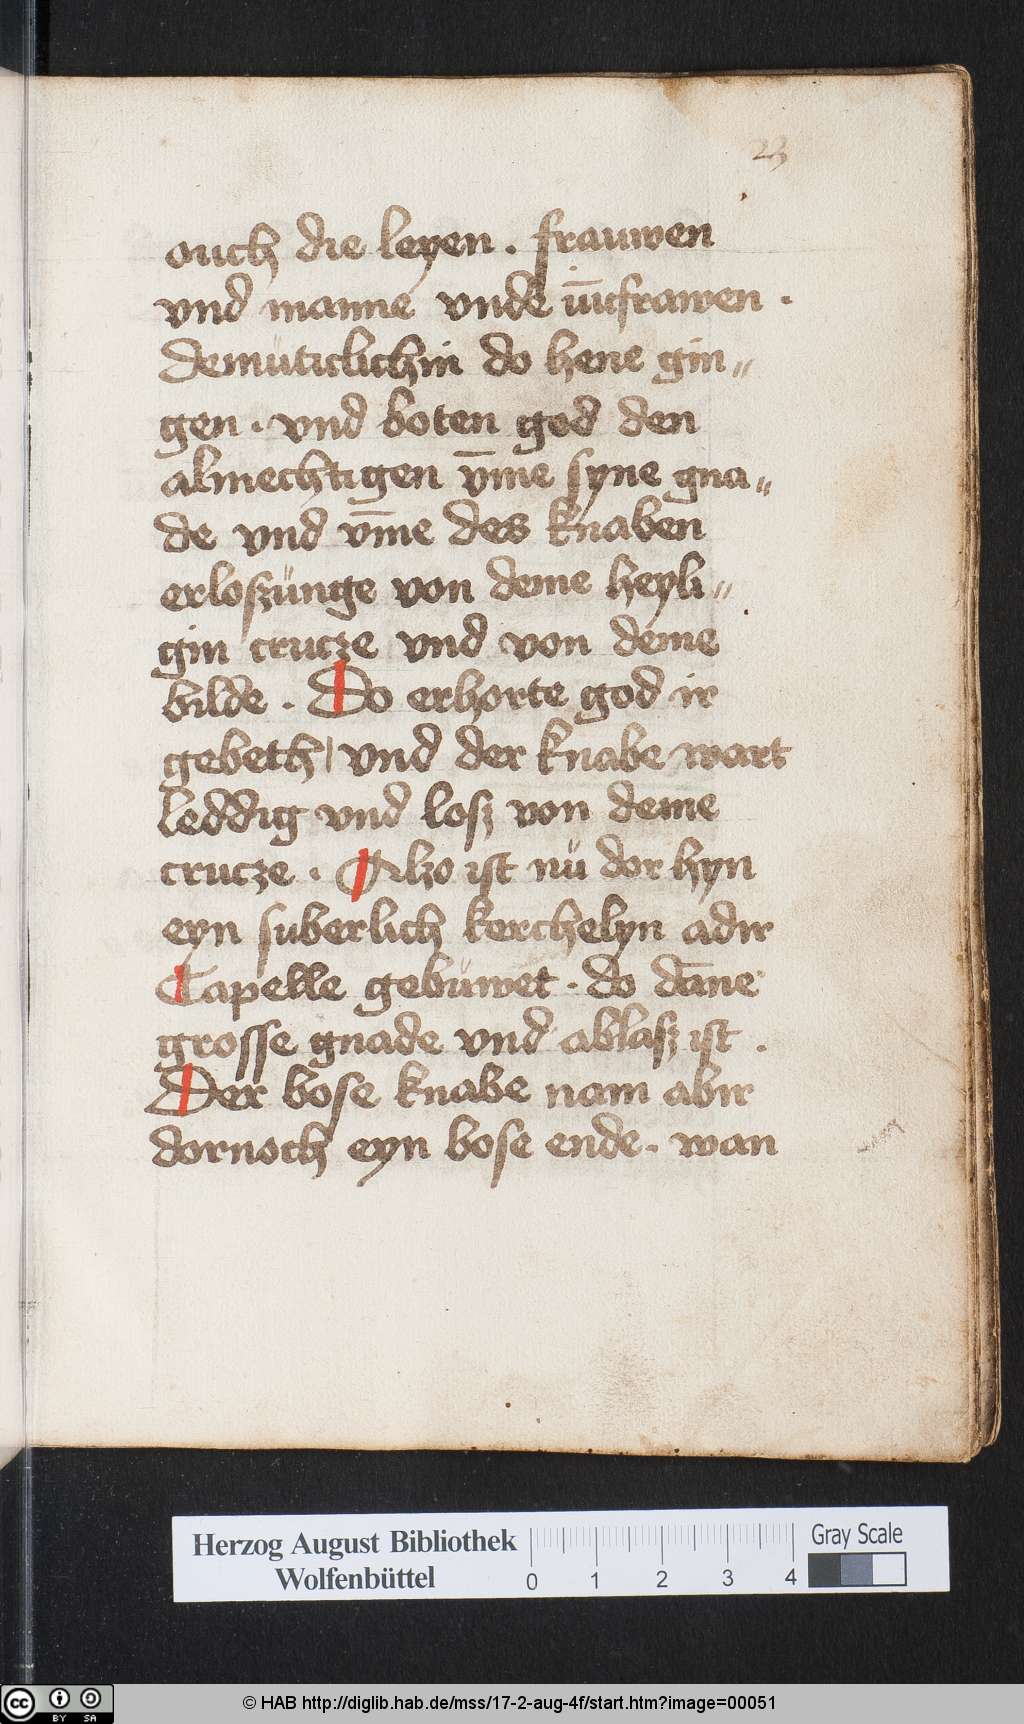 23
ouch die leyen . frauwen
vnd manne vnde iūcfrawen .
demüticlichin do hene gin〃
gen . vnd boten god den
almechtigen v̄me syne gna〃
de vnd v̄me des knaben
erloszünge von deme heyli〃
gin crucze vnd von deme
bilde . Do erhorte god ir
gebeth | vnd der knabe wart
leddig vnd losz von deme
crucze . Alzo ist nü dor hyn
eyn suberlich kerchelyn adir
Capelle gebüwet . do dāne
grosse gnade vnd ablasz ist .
Der bose knabe nam abir
dornoch eyn bose ende . wan
Herzog August Bibliothek
Wolfenbüttel
0 1 2 3 4
Gray Scale
cc BY SA
© HAB http://diglib.hab.de/mss/17-2-aug-4f/start.htm?image=00051